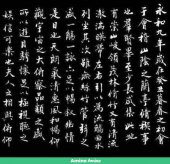 永和九年歲在癸丑暮春之初會
于會稽山陰之蘭亭修稧事
也群賢畢至少長咸集此地
有崇山峻領茂林脩竹又有清流
激湍暎帶左右引以為流觴曲水
列坐其次雖無絲竹管弦之
盛一觴一詠亦足以暢敘幽情
是日也天朗氣清惠風和暢仰
觀宇宙之大俯察品類之盛
所以遊目騁懷足以極視聽之
娛信可樂也夫人之相與俯仰